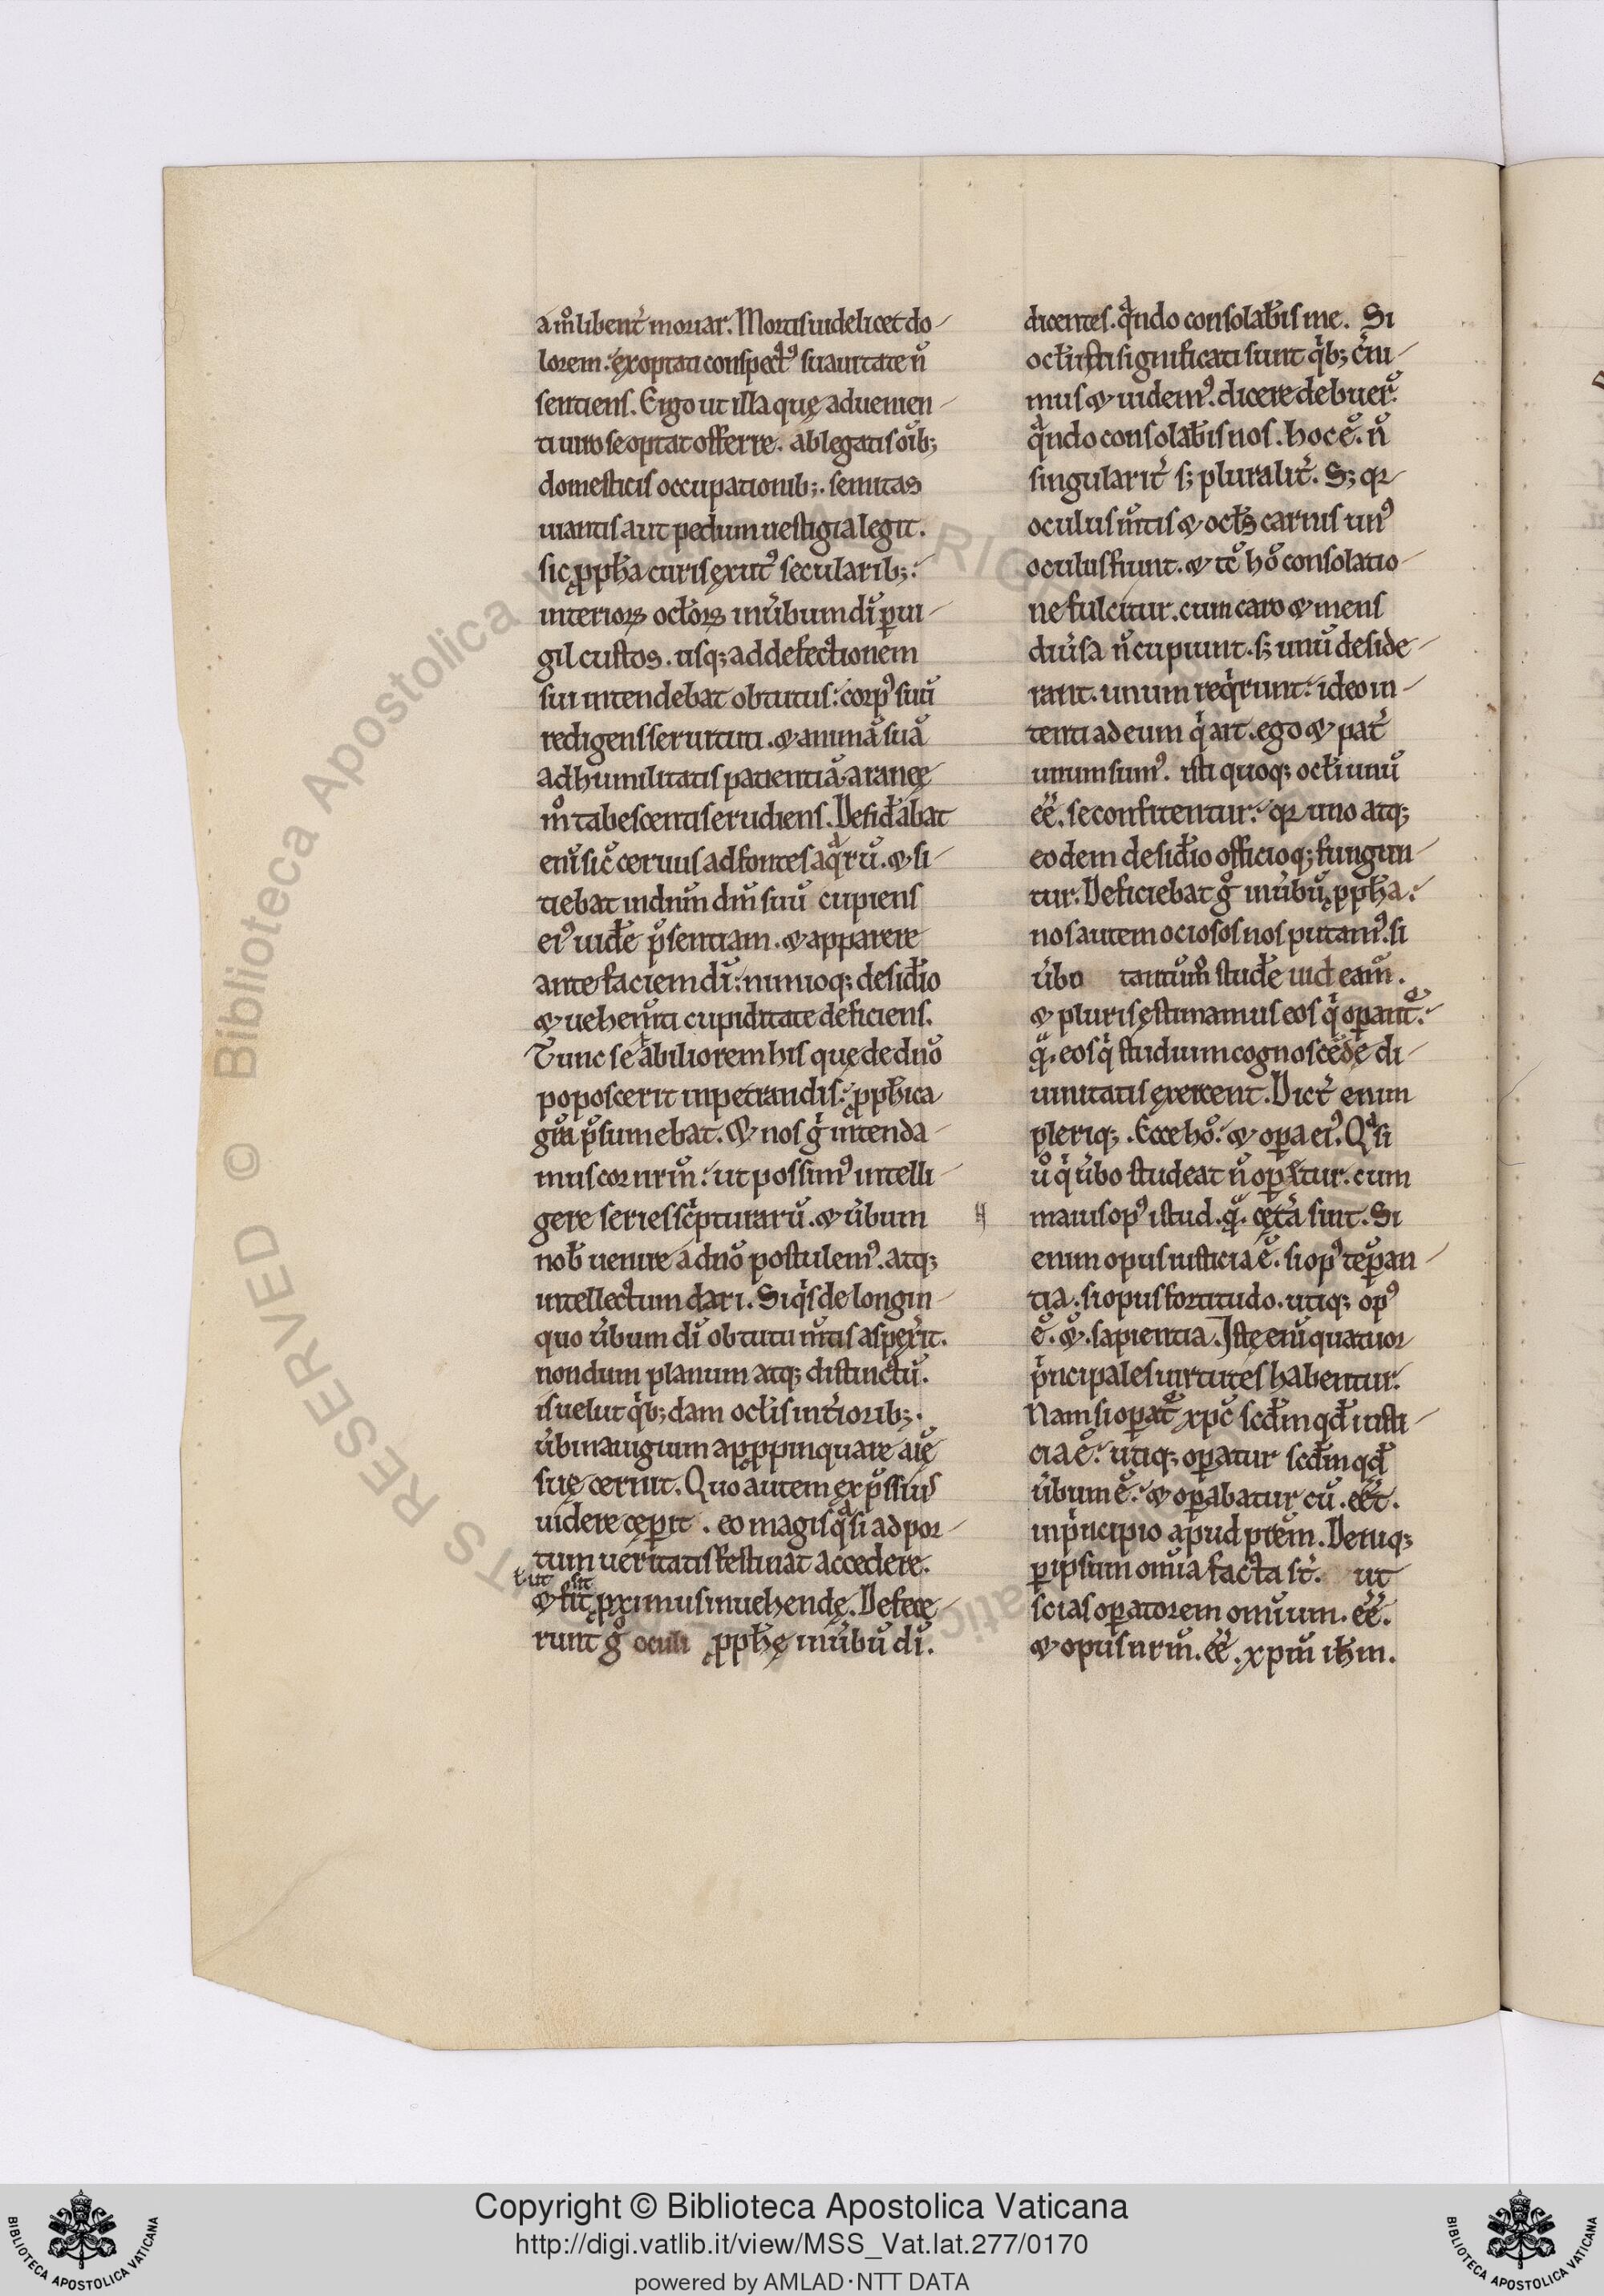 am̊ libent̉ moriar. Mortis uidelicet do-
lorem: exoptati conspectꝰ suauitate n̄
sentiens. Ergo ut illa quę aduenien-
ti uiro se optat offerre. ablegatis oīb;
domesticis occupationib;. semitas
uiantis aut pedum uestigia legit.
sic ꝓph̄a curis exutꝰ secularib;:
interioꝝ ocl̄oꝝ in u̓bum dī ꝑui-
gil custos. usq; ad defectionem
sui intendebat obtutus: corpꝰ suū
redigens seruituti. & animā suā
ad humilitatis patientiā aranęę
m̊ tabescentis erudiens. Desid̄abat
eni sic̄ ceruus ad fontes aqᵃrū. & si-
tiebat in dn̄m dm̄ suū cupiens
eiꝰ uid̄e p̄sentiam. & apparere
ante faciem dī: nimioq; desid̄io
& uehem̄ti cupiditate deficiens.
Tunc se abiliorem his quę de dn̄o
poposcerit inpetrandis: ꝓph̄ica
gr̄a p̄sumebat. & nos gͥ intenda-
mus cor nrm̄: ut possimꝰ intelli-
gere series scͥpturarū. & u̓bum
nob̄ uenire a dn̄o postulemꝰ. atq;
intellectum dari. Si qͥs de longin-
quo u̓bum dī obtutu m̄tis aspex̓it.
nondum planum atq; distinctū.
is uelut qͥb;dam ocl̄is int̓iorib;.
u̓bi nauigium apꝓpinquare aīę
suę cernit. Quo autem exp̄ssius
uidere cęꝑit. eo magis qᵃsi ad por-
tum ueritatis festinat accedere.
ł. ut sit
& fit ꝓximus inuehendę. Defece-
runt gͦ oculi ꝓph̄ę in u̓bū dī.
dicentes. qᵃndo consolab̄is me. Si
ocl̄i isti significati sunt qͥb; c̓ni-
mus & uidemꝰ. dicere debuer̄.
qᵃndo consolab̄is nos. hoc ē. n̄
singularit̓ s; pluralit̓. S; qꝛ
oculus m̄tis & ocl̄s carnis unꝰ
oculus fiunt. & tc̄ hō consolatio-
ne fulcitur. cum caro & mens
diu̓sa n̄ cupiunt. s; unū deside-
rant. unum reqͥrunt: ideo in-
tenti ad eum qͥ ait. ego & pat̓
unum sumꝰ. isti quoq; ocl̄i unū
eē. se confitentur: qꝛ uno atq;
eodem desid̄io officioq; fungun-
tur. Deficiebat gͦ in u̓bū ꝓph̄a:
nos autem ociosos nos putamꝰ. si
u̓bo tantūm̊ stud̄e uideam̄.
& pluris ęstimamus eos qͥ oꝑant̄:
q̄. eos qͥ studium cognoscēdę di-
uinitatis exercent. Dict̓ enim
pleriq;. Ecce hō: & oꝑa eiꝰ. Qᵃsi
ů qͥ u̓bo studeat n̄ oꝑetur. cum
maius opꝰ istud. q̄. cęt̓a sint. Si
enim opus iusticia ē. si opꝰ teꝑan-
tia. si opus fortitudo. utiq; opꝰ
ē. &. sapientia. Istę eni quatuor
pͥncipales uirtutes habentur.
Nam si oꝑat̄ xpc̄ scd̄m qd̄ iusti-
cia ē: utiq; oꝑatur scd̄m qd̄
u̓bum ē: & oꝑabatur cū. eēt.
in pͥncipio apud prēm. Deniq;
ꝑ ipsum om̄ia facta st̄. ut
scias oꝑatorem om̄ium. eē.
& opus nrm̄. eē. xpm̄ ihm̄.
Copyright © Biblioteca Apostolica Vaticana
http://digi.vatlib.it/view/MSS_Vat.lat.277/0170
powered by AMLAD·NTT DATA